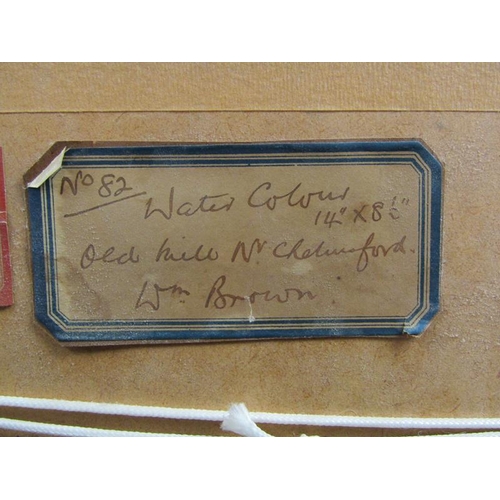 No 82
Water Colour
14" x 8½"
Old Mill Nr Chelmsford.
Wm Brown.